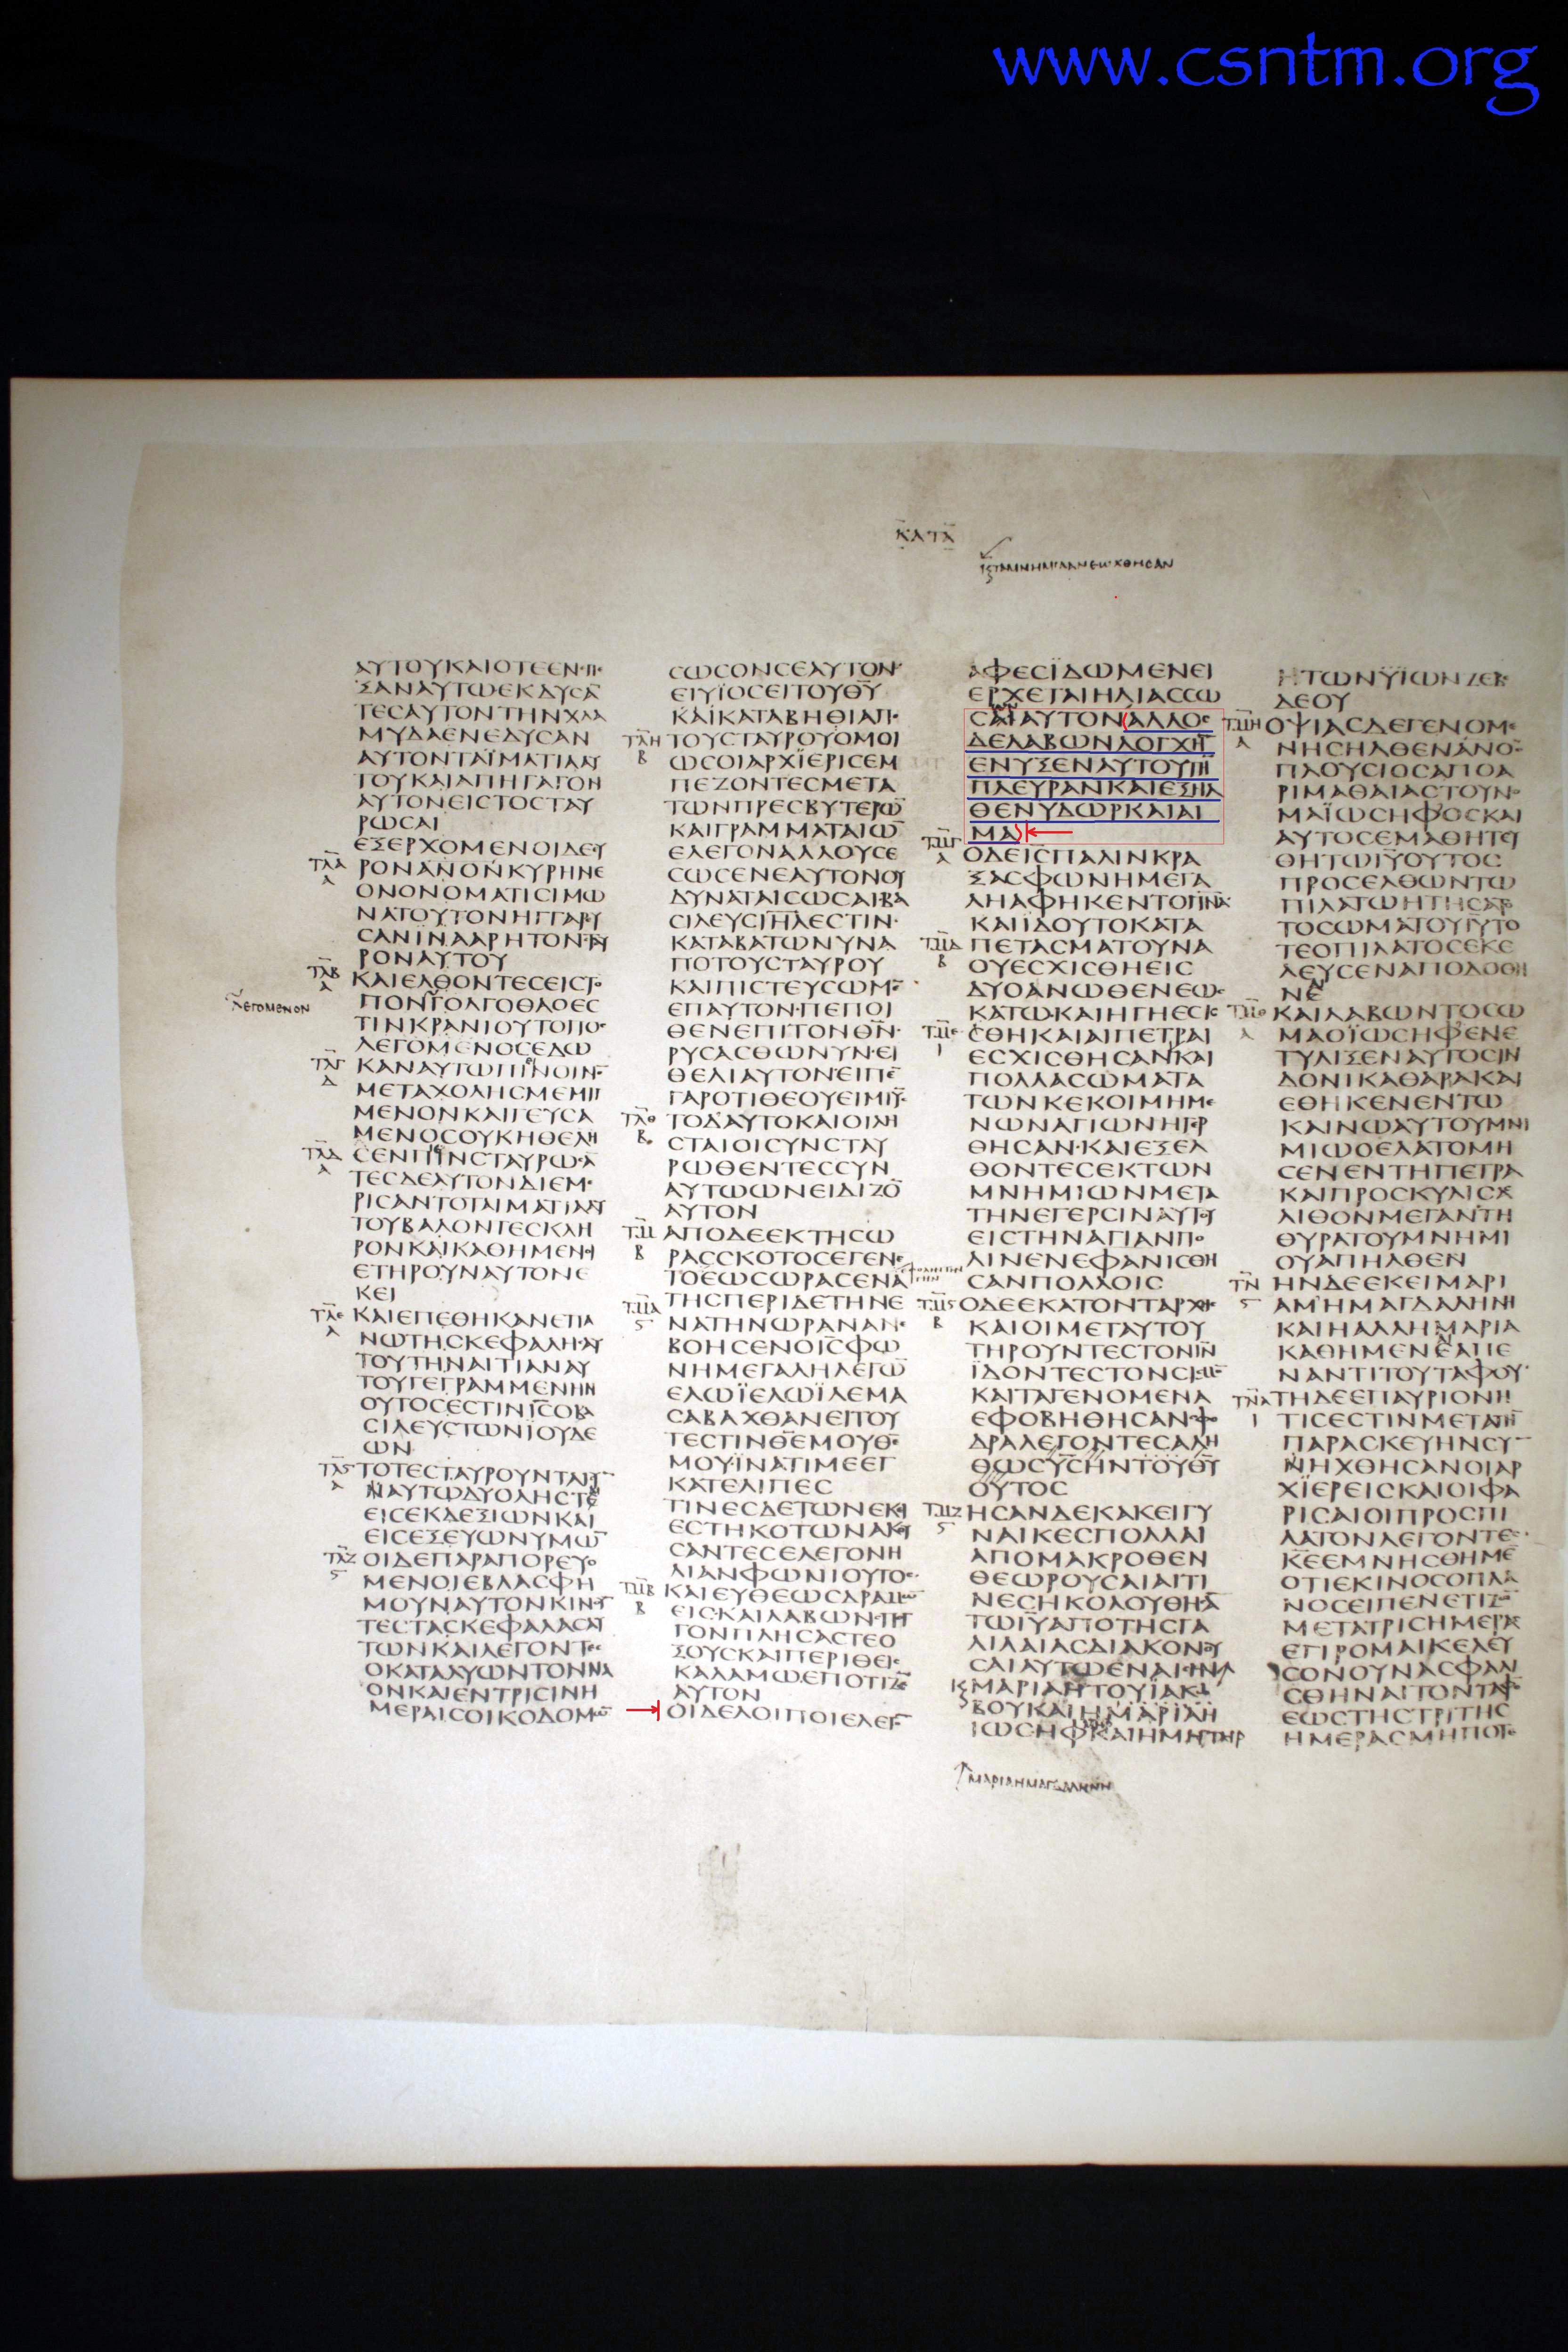 www.csntm.org
ΚΑΤΑ
ΑΥΤΟΥΚΑΙΟΤΕΕΝΕΠ
ΞΑΝΑΥΤΩΕΚΔΥCΑ
ΤΕCΑΥΤΟΝΤΗΝΧΛΑ
ΜΥΔΑΕΝΕΔΥCΑΝ
ΑΥΤΟΝΤΑΪΜΑΤΙΑΑΥ
ΤΟΥΚΑΙΑΠΗΓΑΓΟΝ
ΑΥΤΟΝΕΙCΤΟCΤΑΥ
ΡΩCΑΙ
ΕΞΕΡΧΟΜΕΝΟΙΔΕΥ
ΡΟΝΑΝΟΝΚΥΡΗΝΕ
ΟΝΟΝΟΜΑΤΙCΙΜΩ
ΝΑΤΟΥΤΟΝΗΓΓΑΡΥ
CΑΝΪΝΑΑΡΗΤΟΝCΤΑΥ
ΡΟΝΑΥΤΟΥ
ΚΑΙΕΛΘΟΝΤΕCΕΙCΤΟ
ΠΟΝΤΟΛΓΟΘΑΟΕC
ΛΕΓΟΜΕΝΟΝ
ΤΙΝΚΡΑΝΙΟΥΤΟΠΟC
ΛΕΓΟΜΕΝΟCΕΔΩ
ΚΑΝΑΥΤΩΠΙΝΟΙΝΟ̅
ΜΕΤΑΧΟΛΗCΜΕΜΙΓ
ΜΕΝΟΝΚΑΙΓΕΥCΑ
ΜΕΝΟCΟΥΚΗΘΕΛΗ
CΕΝΠΙΝCΤΑΥΡΩCΑ
ΤΕCΔΕΑΥΤΟΝΔΙΕΜΕ
ΡΙCΑΝΤΟΤΑΙΜΑΤΙΑΑΥ
ΤΟΥΒΑΛΟΝΤΕCΚΛΗ
ΡΟΝΚΑΙΚΑΘΗΜΕΝΟΙ
ΕΤΗΡΟΥΝΑΥΤΟΝΕ
ΚΕΙ
ΚΑΙΕΠΕΘΗΚΑΝΕΠΑ
ΝΩΤΗCΚΕΦΑΛΗCΑΥ
ΤΟΥΤΗΝΑΙΤΙΑΝΑΥ
ΤΟΥΓΕΓΡΑΜΜΕΝΗΝ
ΟΥΤΟCΕCΤΙΝΙ̅C̅ΟΒΑ
CΙΛΕΥCΤΩΝΙΟΥΔΕ
ΩΝ
ΤΟΤΕCΤΑΥΡΟΥΝΤΑΙCΥ
ΝΑΥΤΩΔΥΟΛΗCΤΕ
ΕΙCΕΚΔΕΞΙΩΝΚΑΙ
ΕΙCΕΞΕΥΩΝΥΜΩ̅
ΟΙΔΕΠΑΡΑΠΟΡΕΥΟ
ΜΕΝΟΙΕΒΛΑCΦΗ
ΜΟΥΝΑΥΤΟΝΚΙΝΟΥ
ΤΕCΤΑCΚΕΦΑΛΑCΑΥ
ΤΩΝΚΑΙΛΕΓΟΝΤΕC
ΟΚΑΤΑΛΥΩΝΤΟΝΝΑ
ΟΝΚΑΙΕΝΤΡΙCΙΝΗ
ΜΕΡΑΙCΟΙΚΟΔΟΜΩ̅
CΩCΟΝCΕΑΥΤΟΝ
ΕΙΥΪΟCΕΙΤΟΥΘ̅Υ̅
ΚΑΙΚΑΤΑΒΗΘΙΑΠΟ
ΤΟΥCΤΑΥΡΟΥΟΜΟΙ
ΩCΟΙΑΡΧΪΕΡΙCΕΜ
ΠΕΖΟΝΤΕCΜΕΤΑ
ΤΩΝΠΡΕCΒΥΤΕΡΩ̅
ΚΑΙΓΡΑΜΜΑΤΑΙΩ̅
ΕΛΕΓΟΝΑΛΛΟΥCΕ
CΩCΕΝΕΑΥΤΟΝΟΥ
ΔΥΝΑΤΑΙCΩCΑΙΒΑ
CΙΛΕΥCΙ̅Η̅Λ̅ΕCΤΙΝ
ΚΑΤΑΒΑΤΩΝΥΝΑ
ΠΟΤΟΥCΤΑΥΡΟΥ
ΚΑΙΠΙCΤΕΥCΩΜΕ̅
ΕΠΑΥΤΟΝΠΕΠΟΙ
ΘΕΝΕΠΙΤΟΝΘ̅Ν̅
ΡΥCΑCΘΩΝΥΝΕΙ
ΘΕΛΙΑΥΤΟΝΕΙΠΕ̅
ΓΑΡΟΤΙΘΕΟΥΕΙΜΙΥ̅C̅
ΤΟΔΑΥΤΟΚΑΙΟΙΛΗ
CΤΑΙΟΙCΥΝCΤΑΥ
ΡΩΘΕΝΤΕCCΥΝ
ΑΥΤΩΩΝΕΙΔΙΖΟ̅
ΑΥΤΟΝ
ΑΠΟΔΕΕΚΤΗCΩ
ΡΑCCΚΟΤΟCΕΓΕΝΕ
ΤΟΕΩCΩΡΑCΕΝΑ
ΤΗCΠΕΡΙΔΕΤΗΝΕ
ΝΑΤΗΝΩΡΑΝΑΝΕ
ΒΟΗCΕΝΟΙ̅C̅ΦΩ
ΝΗΜΕΓΑΛΗΛΕΓΩ̅
ΕΛΩΪΕΛΩΪΛΕΜΑ
CΑΒΑΧΘΑΝΕΙΤΟΥ
ΤΕCΤΙΝΘΕΜΟΥΘΕ
ΜΟΥΪΝΑΤΙΜΕΕΓ
ΚΑΤΕΛΙΠΕC
ΤΙΝΕCΔΕΤΩΝΕΚΙ
ΕCΤΗΚΟΤΩΝΑΚΟΥ
CΑΝΤΕCΕΛΕΓΟΝΗ
ΛΙΑΝΦΩΝΙΟΥΤΟC
ΚΑΙΕΥΘΕΩCΔΡΑΜΩ̅
ΕΙCΚΑΙΛΑΒΩΝCΠΟΓ
ΓΟΝΠΛΗCΑCΤΕΟ
ΞΟΥCΚΑΙΠΕΡΙΘΕΙC
ΚΑΛΑΜΩΕΠΟΤΙΖΕ̅
ΑΥΤΟΝ
ΟΙΔΕΛΟΙΠΟΙΕΛΕΓΟ̅
ΑΦΕCΪΔΩΜΕΝΕΙ
ΕΡΧΕΤΑΙΗΛΙΑCCΩ
CΑΙΑΥΤΟΝΑΛΛΟC
ΔΕΛΑΒΩΝΛΟΓΧΗ̅
ΕΝΥΞΕΝΑΥΤΟΥΤΗ̅
ΠΛΕΥΡΑΝΚΑΙΕΞΗΛ
ΘΕΝΥΔΩΡΚΑΙΑΙ
ΜΑ
ΟΔΕΙ̅C̅ΠΑΛΙΝΚΡΑ
ΞΑCΦΩΝΗΜΕΓΑ
ΛΗΑΦΗΚΕΝΤΟΠ̅Ν̅Α̅
ΚΑΙΪΔΟΥΤΟΚΑΤΑ
ΠΕΤΑCΜΑΤΟΥΝΑ
ΟΥΕCΧΙCΘΗΕΙC
ΔΥΟΑΝΩΘΕΝΕΩC
ΚΑΤΩΚΑΙΗΓΗΕCΙ
CΘΗΚΑΙΑΙΠΕΤΡΑΙ
ΕCΧΙCΘΗCΑΝΚΑΙ
ΠΟΛΛΑCΩΜΑΤΑ
ΤΩΝΚΕΚΟΙΜΗΜΕ
ΝΩΝΑΓΙΩΝΗΓΕΡ
ΘΗCΑΝΚΑΙΕΞΕΛ
ΘΟΝΤΕCΕΚΤΩΝ
ΜΝΗΜΙΩΝΜΕΤΑ
ΤΗΝΕΓΕΡCΙΝΑΥΤΟΥ
ΕΙCΤΗΝΑΓΙΑΝΠΟ
ΛΙΝΕΝΕΦΑΝΙCΘΗ
CΑΝΠΟΛΛΟΙC
ΟΔΕΕΚΑΤΟΝΤΑΡΧΗC
ΚΑΙΟΙΜΕΤΑΥΤΟΥ
ΤΗΡΟΥΝΤΕCΤΟΝΙ̅Ν̅
ΪΔΟΝΤΕCΤΟΝCΙCΜΟ̅
ΚΑΙΤΑΓΕΝΟΜΕΝΑ
ΕΦΟΒΗΘΗCΑΝCΦΟ
ΔΡΑΛΕΓΟΝΤΕCΑΛΗ
ΘΩCΥ̅C̅ΗΝΤΟΥΘ̅Υ̅
ΟΥΤΟC
ΗCΑΝΔΕΚΑΚΕΙΓΥ
ΝΑΙΚΕCΠΟΛΛΑΙ
ΑΠΟΜΑΚΡΟΘΕΝ
ΘΕΩΡΟΥCΑΙΑΙΤΙ
ΝΕCΗΚΟΛΟΥΘΗCΑ̅
ΤΩΙ̅Υ̅ΑΠΟΤΗCΓΑ
ΛΙΛΑΙΑCΔΙΑΚΟΝΟΥ
CΑΙΑΥΤΩΕΝΑΙCΗΝ
ΜΑΡΙΑΗΤΟΥΪΑΚΩ
ΒΟΥΚΑΙΗΜΑΡΙΑΗ
ΙΩCΗΦΚΑΙΗΜΗΤΗΡ
ΜΑΡΙΑΗΜΑΓΔΑΛΗΝΗ
ΗΤΩΝΥΪΩΝΖΕΒΕ
ΔΕΟΥ
ΟΨΙΑCΔΕΓΕΝΟΜΕ
ΝΗCΗΛΘΕΝΑΝΟC
ΠΛΟΥCΙΟCΑΠΟΑ
ΡΙΜΑΘΑΙΑCΤΟΥΝΟ
ΜΑΪΩCΗΦΟCΚΑΙ
ΑΥΤΟCΕΜΑΘΗΤΕΥ
ΘΗΤΩΙ̅Υ̅ΟΥΤΟC
ΠΡΟCΕΛΘΩΝΤΩ
ΠΙΛΑΤΩΗΤΗCΑΤΟ
ΤΟCΩΜΑΤΟΥΙ̅Υ̅ΤΟ
ΤΕΟΠΙΛΑΤΟCΕΚΕ
ΛΕΥCΕΝΑΠΟΔΟΘΗ
ΝΕ
ΚΑΙΛΑΒΩΝΤΟCΩ
ΜΑΟΪΩCΗΦΕΝΕ
ΤΥΛΙΞΕΝΑΥΤΟCΙΝ
ΔΟΝΙΚΑΘΑΡΑΚΑΙ
ΕΘΗΚΕΝΕΝΤΩ
ΚΑΙΝΩΑΥΤΟΥΜΝΗ
ΜΙΩΟΕΛΑΤΟΜΗ
CΕΝΕΝΤΗΠΕΤΡΑ
ΚΑΙΠΡΟCΚΥΛΙCΑC
ΛΙΘΟΝΜΕΓΑΝΤΗ
ΘΥΡΑΤΟΥΜΝΗΜΙ
ΟΥΑΠΗΛΘΕΝ
ΗΝΔΕΕΚΕΙΜΑΡΙ
ΑΜΗΜΑΓΔΑΛΗΝΗ
ΚΑΙΗΑΛΛΗΜΑΡΙΑ
ΚΑΘΗΜΕΝΕΑΠΕ
ΝΑΝΤΙΤΟΥΤΑΦΟΥ
ΤΗΔΕΕΠΑΥΡΙΟΝΗ
ΤΙCΕCΤΙΝΜΕΤΑΤΗ̅
ΠΑΡΑCΚΕΥΗΝCΥ
ΝΗΧΘΗCΑΝΟΙΑΡ
ΧΪΕΡΕΙCΚΑΙΟΙΦΑ
ΡΙCΑΙΟΙΠΡΟCΠΙ
ΛΑΤΟΝΛΕΓΟΝΤΕC
Κ̅Ε̅ΕΜΝΗCΘΗΜΕ̅
ΟΤΙΕΚΙΝΟCΟΠΛΑ
ΝΟCΕΙΠΕΝΕΤΙΖΩ̅
ΜΕΤΑΤΡΙCΗΜΕΡΑC
ΕΓΙΡΟΜΑΙΚΕΛΕΥ
CΟΝΟΥΝΑCΦΑΛΙ
CΘΗΝΑΙΤΟΝΤΑΦΟ̅
ΕΩCΤΗCΤΡΙΤΗC
ΗΜΕΡΑCΜΗΠΟΤΕ